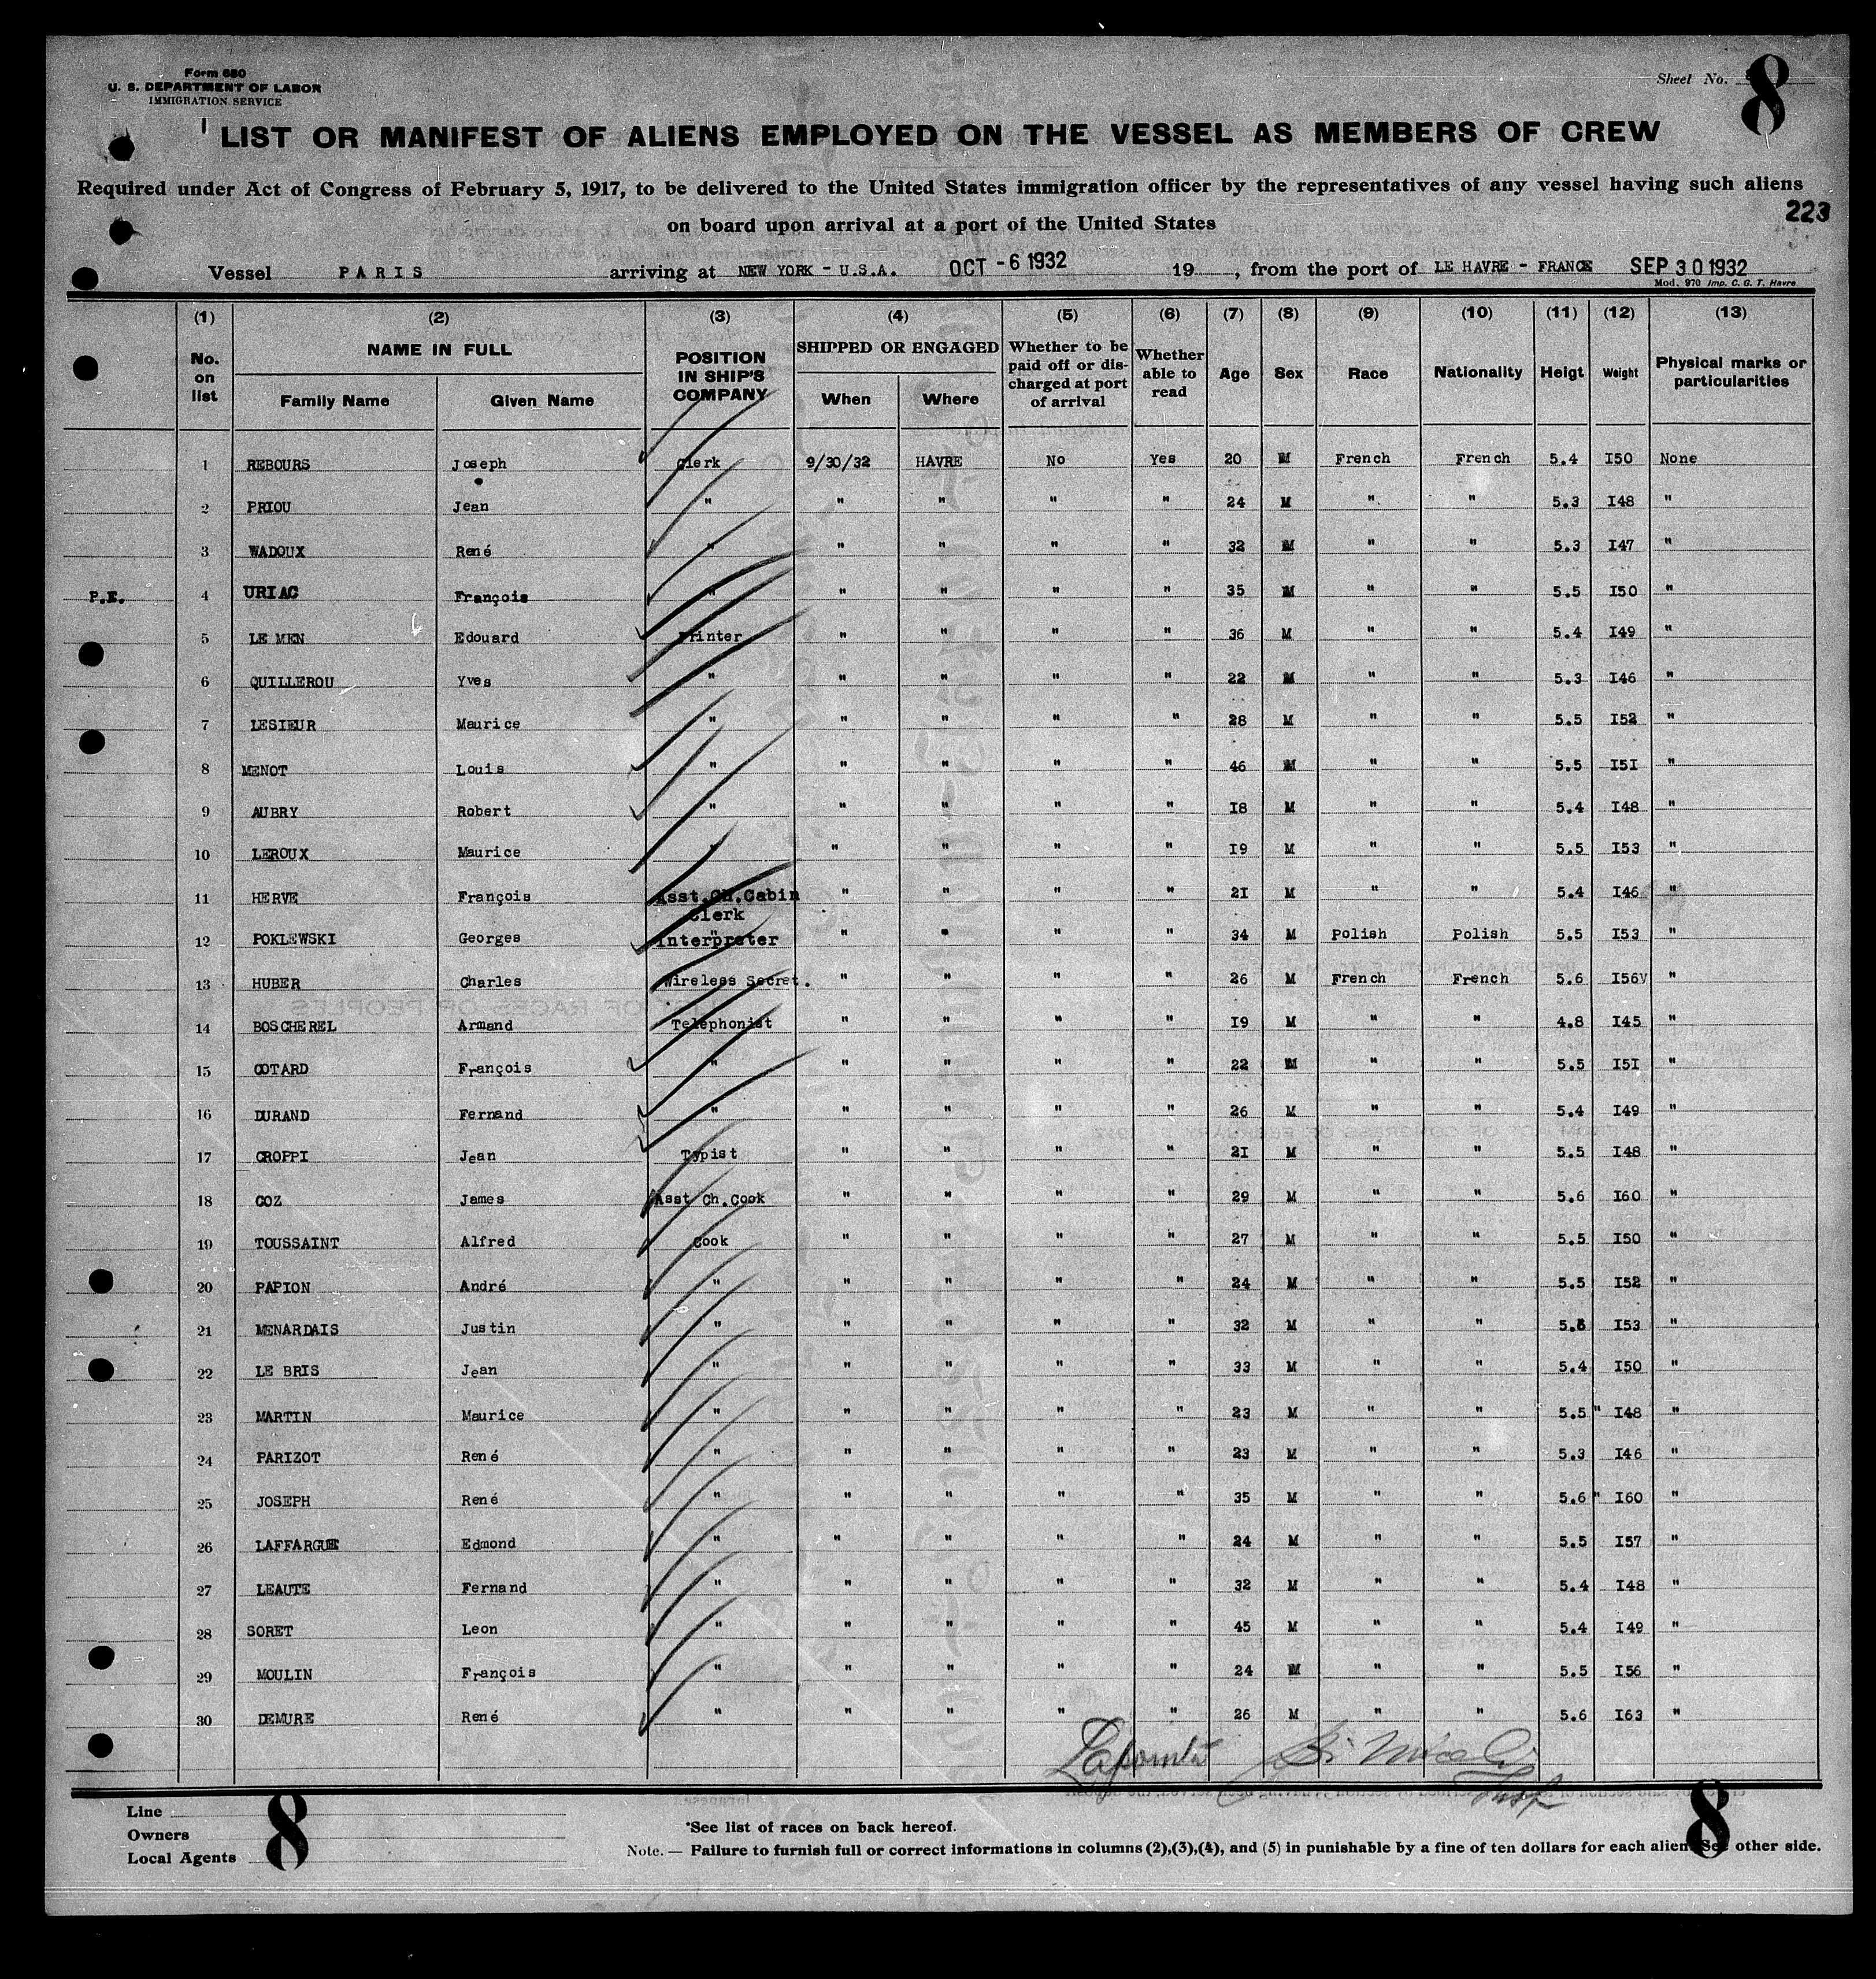 Form 680
U. S. DEPARTMENT OF LABOR
IMMIGRATION SERVICE
Sheet No. 8
LIST OR MANIFEST OF ALIENS EMPLOYED ON THE VESSEL AS MEMBERS OF CREW
Required under Act of Congress of February 5, 1917, to be delivered to the United States immigration officer by the representatives of any vessel having such aliens
on board upon arrival at a port of the United States
223
Vessel PARIS arriving at NEW YORK - U.S.A. OCT -6 1932 19 , from the port of LE HAVRE - FRANCE SEP 30 1932
Mod. 970 Imp. C. G. T. Havre
(1) (2) (3) (4) (5) (6) (7) (8) (9) (10) (11) (12) (13)
No. on list NAME IN FULL Family Name Given Name POSITION IN SHIP'S COMPANY SHIPPED OR ENGAGED When Where Whether to be paid off or discharged at port of arrival Whether able to read Age Sex Race Nationality Heigt Weight Physical marks or particularities
1 REBOURS Joseph Clerk 9/30/32 HAVRE No Yes 20 M French French 5.4 I50 None
2 PRIOU Jean " " " " " 24 M " " 5.3 I48 "
3 WADOUX René " " " " " 32 M " " 5.3 I47 "
P.E. 4 URIAC François " " " " " 35 M " " 5.5 I50 "
5 LE MEN Edouard Printer " " " " 36 M " " 5.4 I49 "
6 QUILLEROU Yves " " " " " 22 M " " 5.3 I46 "
7 LESIEUR Maurice " " " " " 28 M " " 5.5 I52 "
8 MENOT Louis " " " " " 46 M " " 5.5 I5I "
9 AUBRY Robert " " " " " I8 M " " 5.4 I48 "
10 LEROUX Maurice " " " " " I9 M " " 5.5 I53 "
11 HERVE François Asst.Ch.Cabin Clerk " " " " 2I M " " 5.4 I46 "
12 POKLEWSKI Georges Interpreter " " " " 34 M Polish Polish 5.5 I53 "
13 HUBER Charles Wireless Secret. " " " " 26 M French French 5.6 I56 "
14 BOSCHEREL Armand Telephonist " " " " I9 M " " 4.8 I45 "
15 COTARD François " " " " " 22 M " " 5.5 I5I "
16 DURAND Fernand " " " " " 26 M " " 5.4 I49 "
17 CROPPI Jean Typist " " " " 2I M " " 5.5 I48 "
18 COZ James Asst Ch.Cook " " " " 29 M " " 5.6 I60 "
19 TOUSSAINT Alfred Cook " " " " 27 M " " 5.5 I50 "
20 PAPION André " " " " " 24 M " " 5.5 I52 "
21 MENARDAIS Justin " " " " " 32 M " " I53 "
22 LE BRIS Jean " " " " " 33 M " " 5.4 I50 "
23 MARTIN Maurice " " " " " 23 M " " 5.5 " I48 "
24 PARIZOT René " " " " " 23 M " " 5.3 I46 "
25 JOSEPH René " " " " " 35 M " " 5.6 " I60 "
26 LAFFARGUE Edmond " " " " " 24 M " " 5.5 I57 "
27 LEAUTE Fernand " " " " " 32 M " " 5.4 I48 "
28 SORET Leon " " " " " 45 M " " 5.4 I49 "
29 MOULIN François " " " " " 24 M " " 5.5 I56 "
30 DEMURE René " " " " " 26 M " " 5.6 I63 "
Line
Owners
Local Agents
8
*See list of races on back hereof.
Note. — Failure to furnish full or correct informations in columns (2),(3),(4), and (5) in punishable by a fine of ten dollars for each alien. See other side.
8